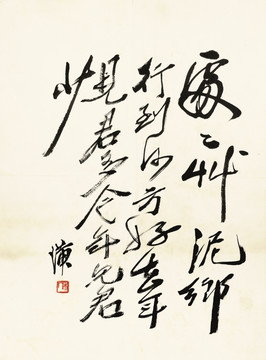 處〻艸泥鄉
行到何方好去年
見君多今年見君
少
璜